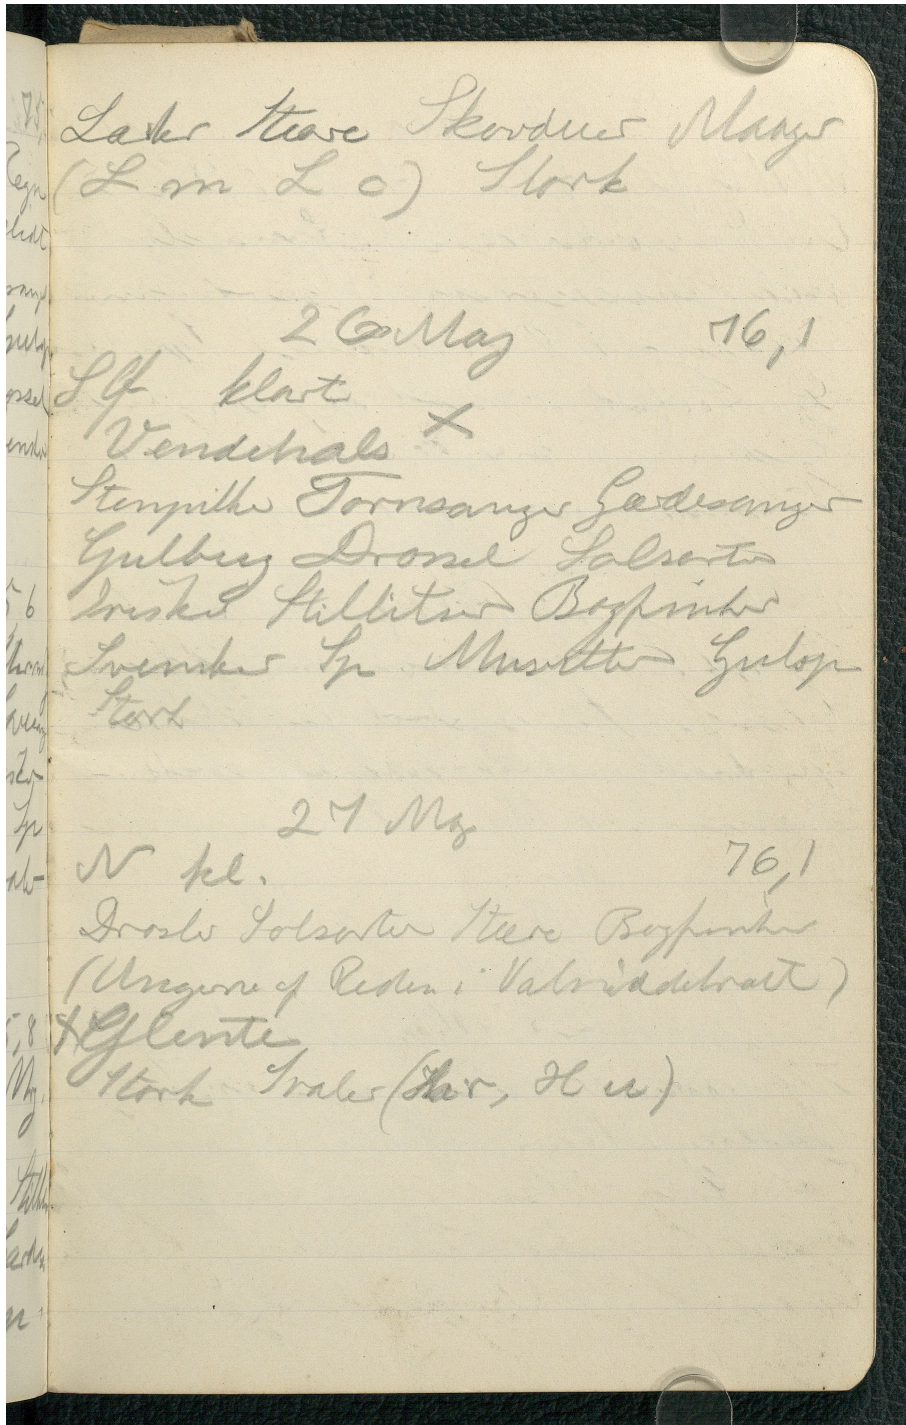 Lærker Stære Skovduer Maager
(L m L o) Stork
26 Maj 76,1
S Ø klart
Vendehals X
Stenpikke Tornsanger Gærdesanger
Gulbug Drossel Solsorter
Iriske Stillitser Bogfinker
Svensker Sp Musvitter Gulsp
Stork
27 Maj
N kl. 76,1
Drosler Solsorter Stære Bogfinker
(Ungerne af Reden i Valnøddekratt)
Glente
Stork Svaler (Hr, H u)